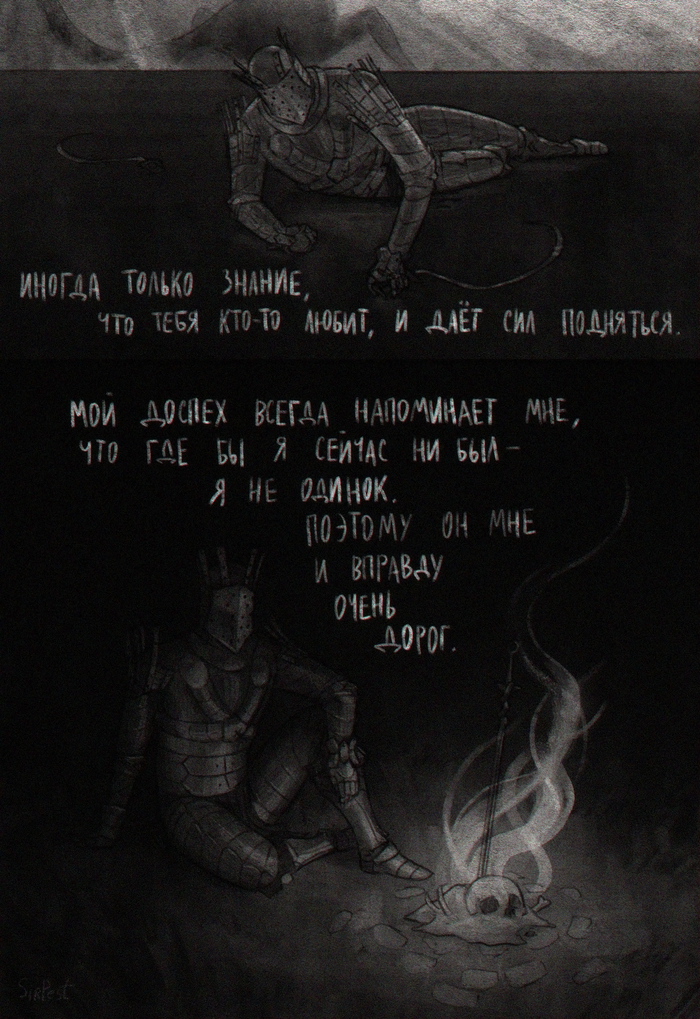 ИНОГДА ТОЛЬКО ЗНАНИЕ,
ЧТО ТЕБЯ КТО-ТО ЛЮБИТ, И ДАЁТ СИЛ ПОДНЯТЬСЯ.
МОЙ ДОСПЕХ ВСЕГДА НАПОМИНАЕТ МНЕ,
ЧТО ГДЕ БЫ Я СЕЙЧАС НИ БЫЛ –
Я НЕ ОДИНОК.
ПОЭТОМУ ОН МНЕ
И ВПРАВДУ
ОЧЕНЬ
ДОРОГ.
SirPest